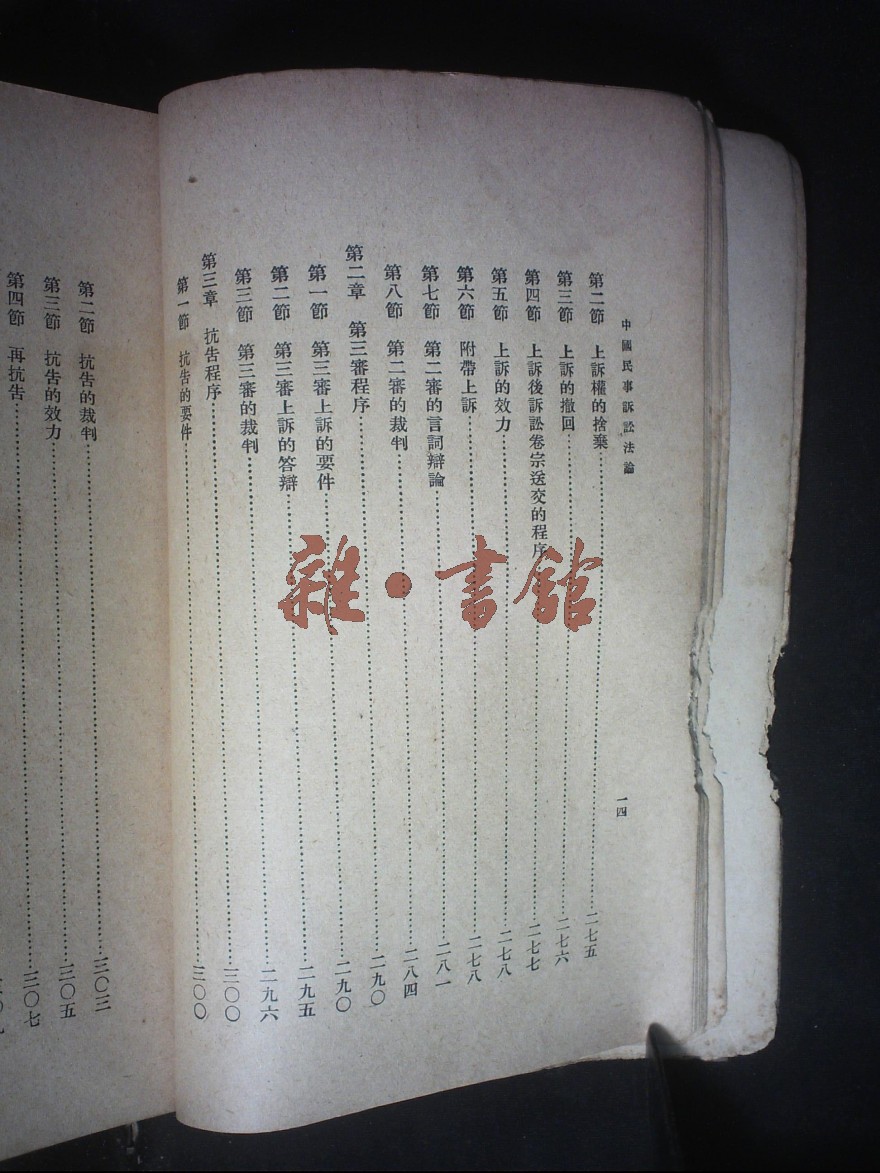 中國民事訴訟法論
一四
第二節 上訴權的捨棄……二七五
第三節 上訴的撤回……二七六
第四節 上訴後訴訟卷宗送交的程序……二七七
第五節 上訴的效力……二七八
第六節 附帶上訴……二七八
第七節 第二審的言詞辯論……二八一
第八節 第二審的裁判……二八四
第二章 第三審程序……二九〇
第一節 第三審上訴的要件……二九〇
第二節 第三審上訴的答辯……二九五
第三節 第三審的裁判……二九六
第三章 抗告程序……三〇〇
第一節 抗告的要件……三〇〇
第二節 抗告的裁判……三〇三
第三節 抗告的效力……三〇五
第四節 再抗告……三〇七
雜·書館